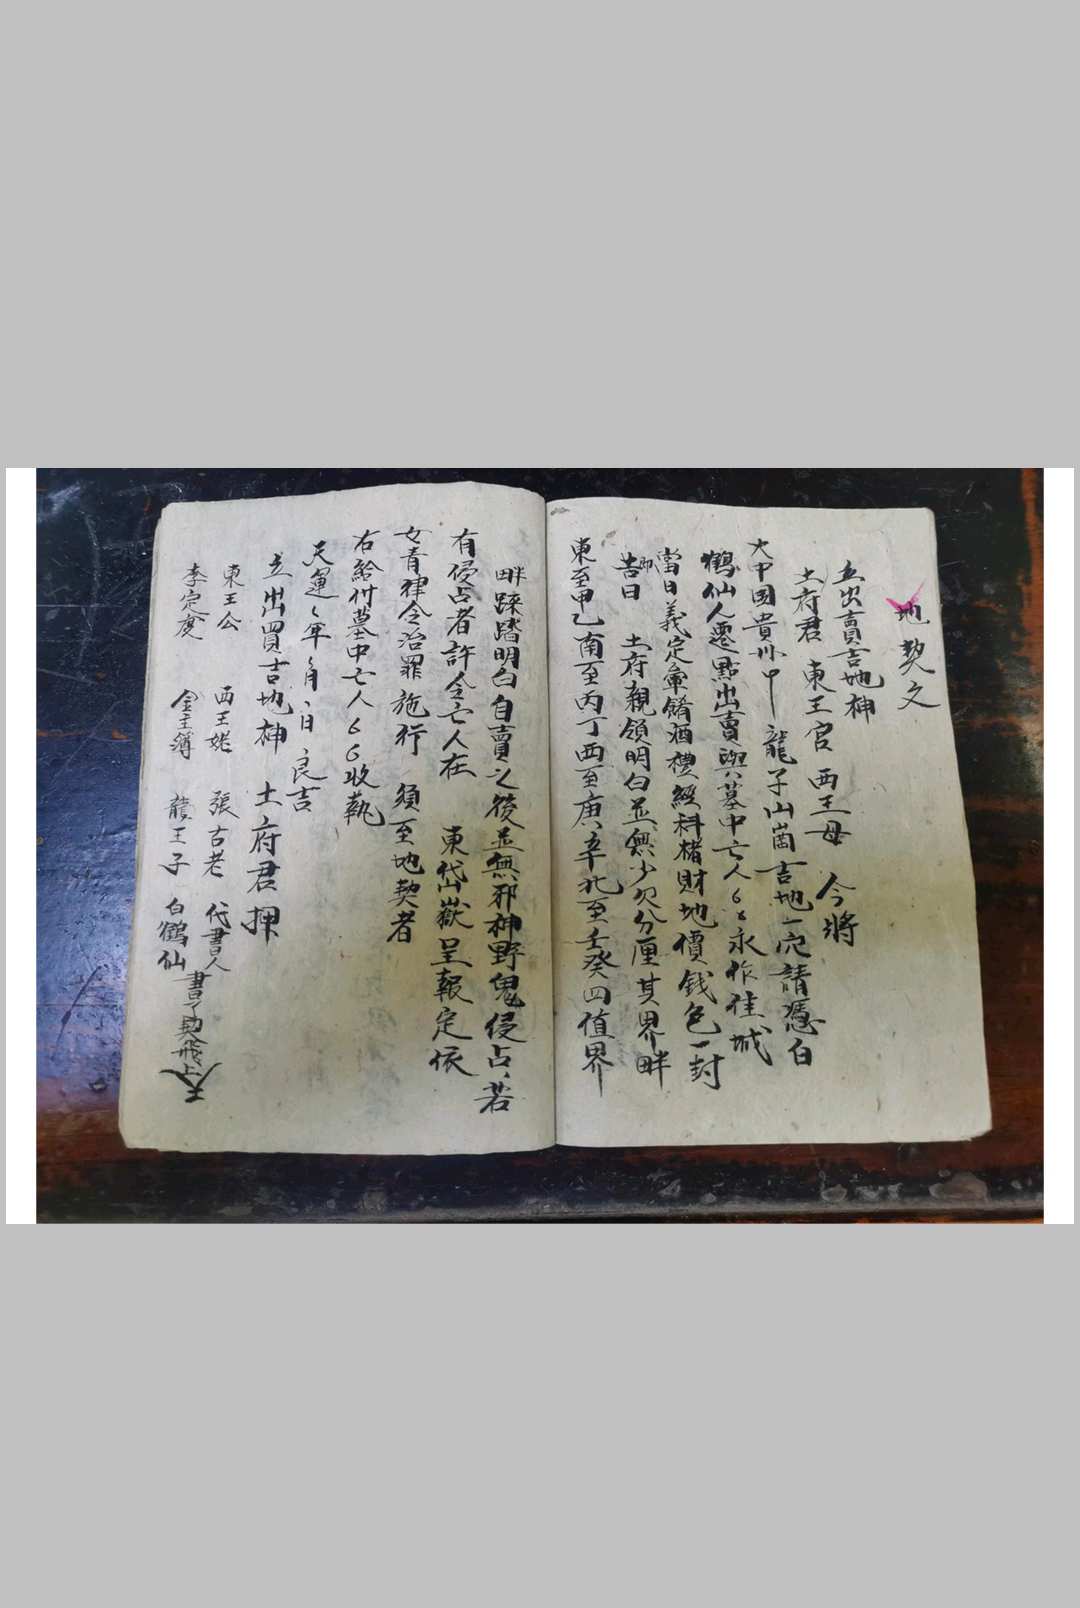 地契文
立出賣吉地神
土府君 東王官 西王母 今將
大中国貴州中 龍子山崗吉地一穴請憑白
鶴仙人選點出賣與墓中亡人 永作佳城
當日義定葷餚酒禮經科楮財地價錢色一封
即告日 土府親領明白並無少欠分厘其界畔
東至甲乙南至丙丁西至庚辛北至壬癸四值界
畔踩踏明白自賣之後並無邪神野鬼侵占若
有侵占者許令亡人在 東岱嶽呈報定依
女青律令治罪施行 須至地契者
右給付墓中亡人 收執
天運 年 月 日 良吉
立出買吉地神 土府君押
東王公 西王姥 張古老 代書人
李定度 金主簿 龍王子 白鶴仙
書了契飛上天